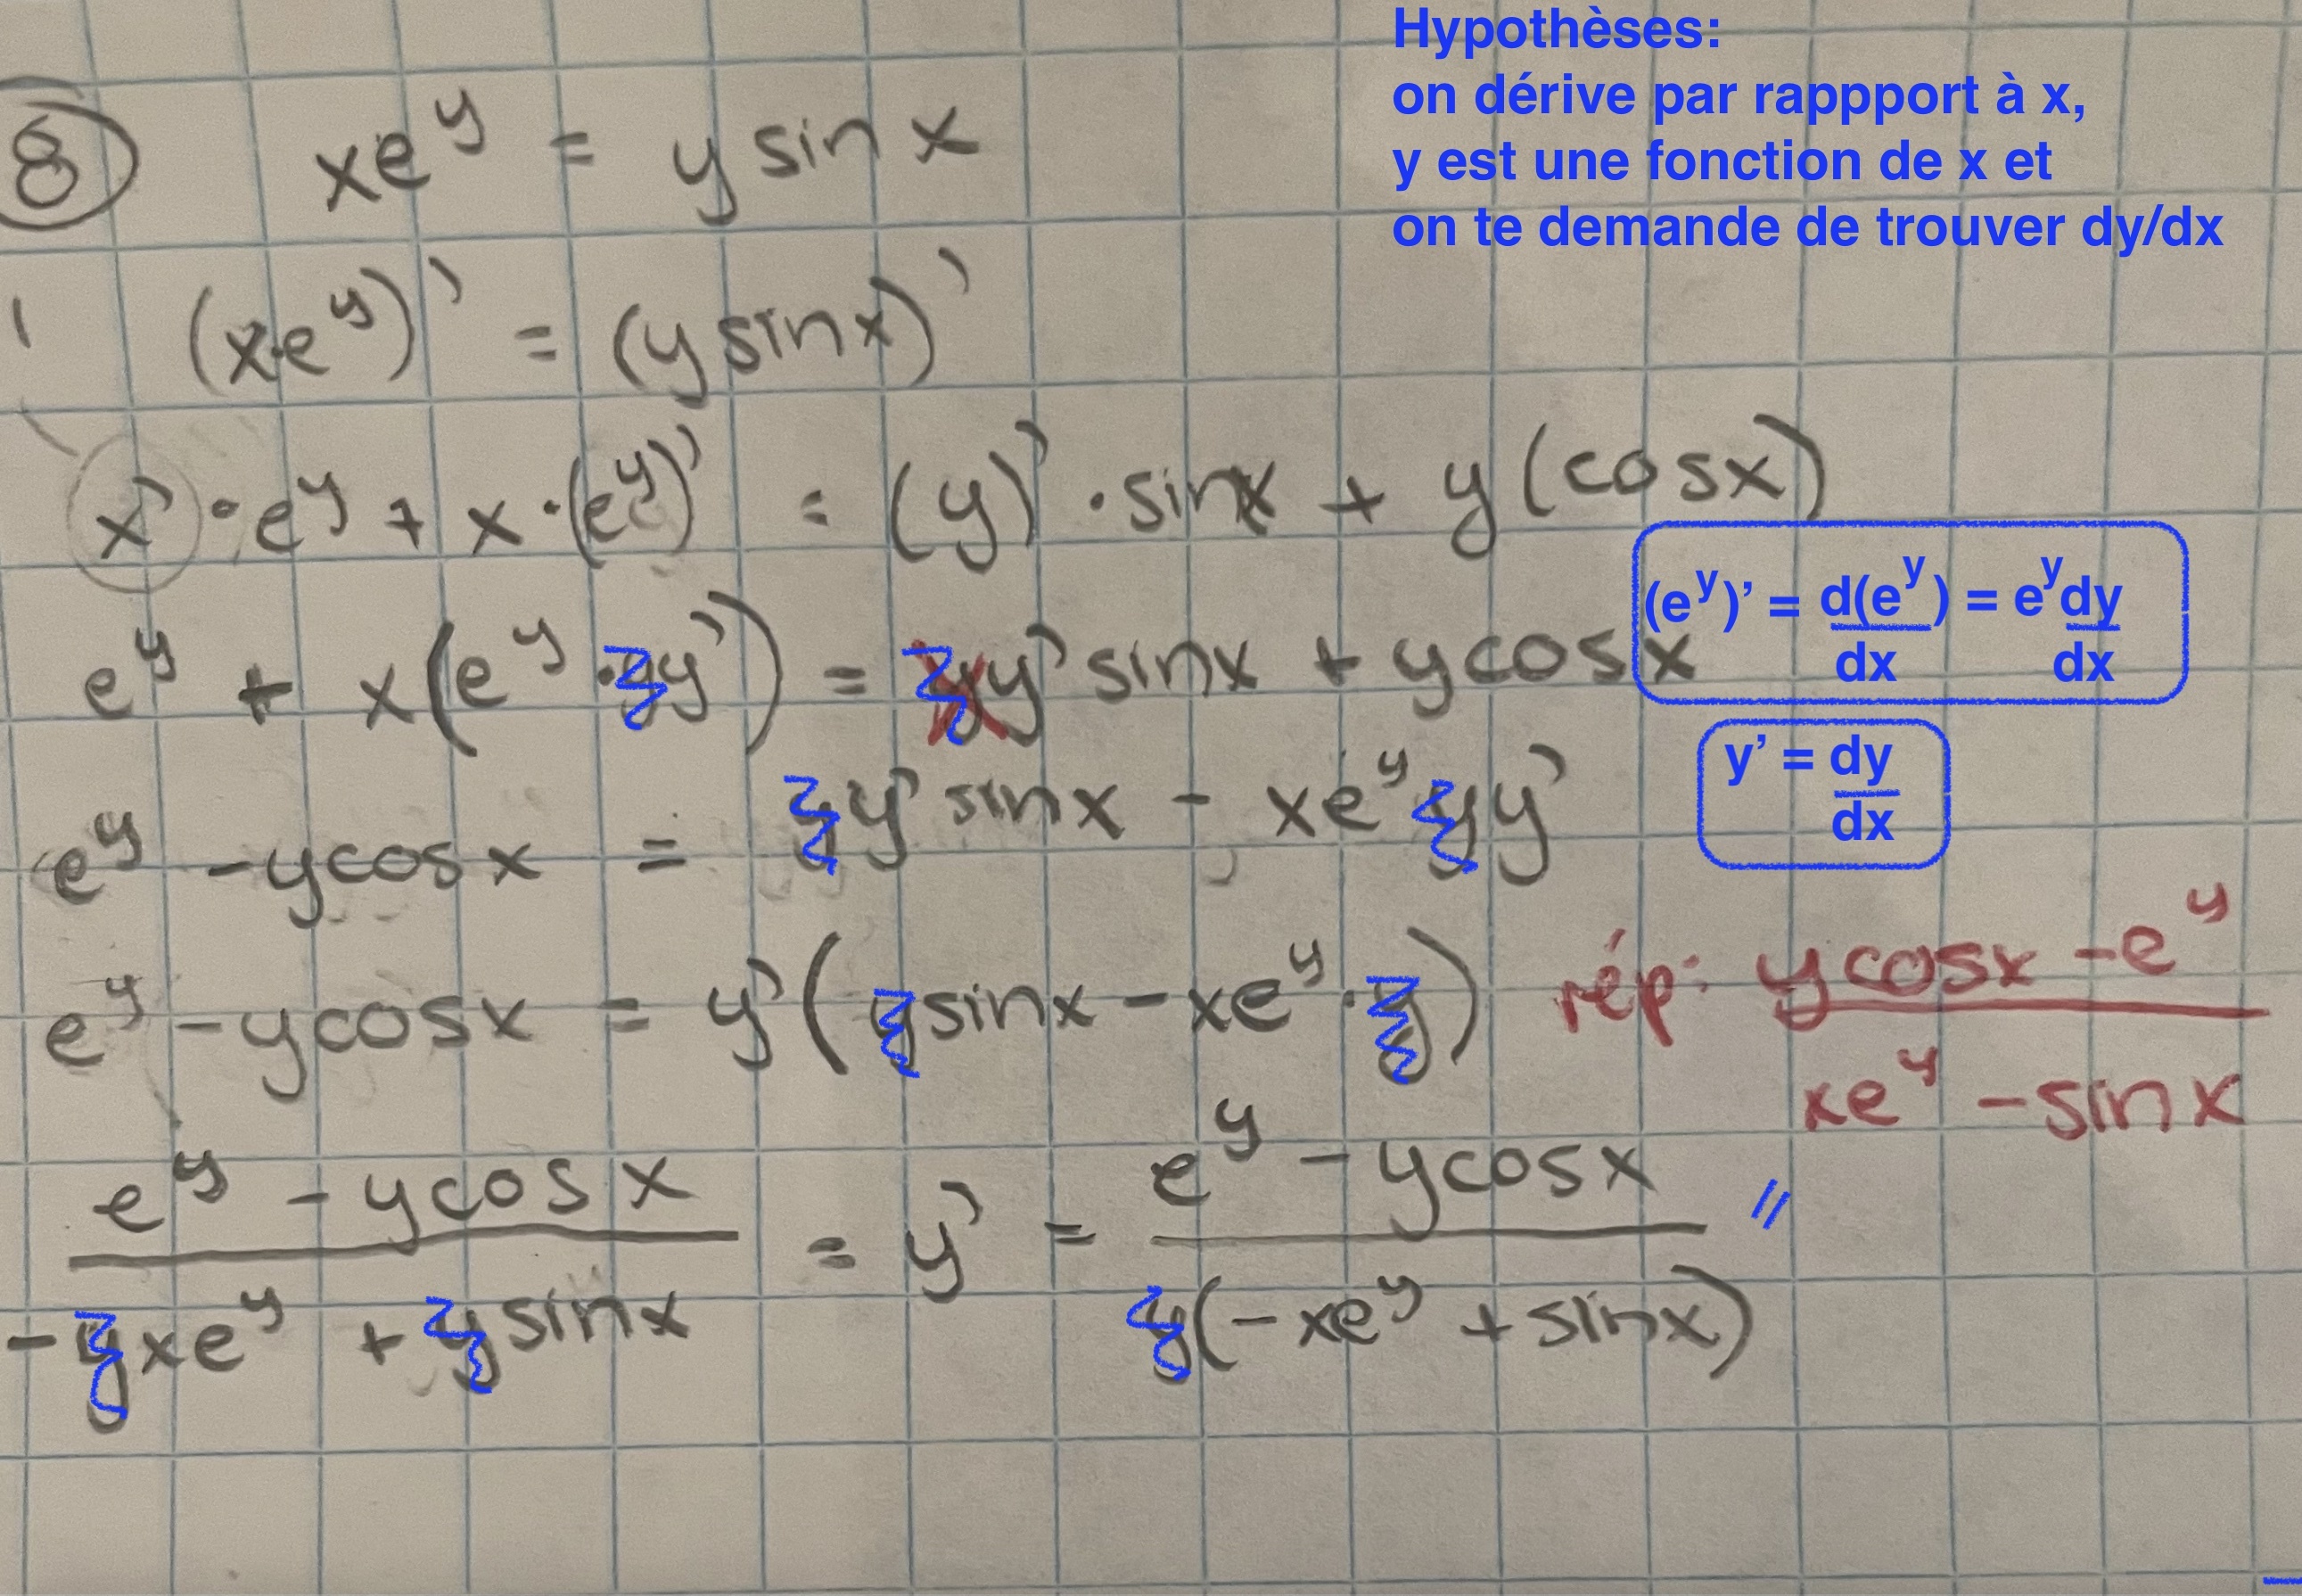 Hypothèses:
on dérive par rappport à x,
y est une fonction de x et
on te demande de trouver dy/dx
8 xe^y = y sin x
(x·e^y)' = (y sinx)'
x' · e^y + x · (e^y)' = (y)' · sinx + y (cosx)
(e^y)' = d(e^y)/dx = e^y dy/dx
e^y + x(e^y · yy') = yy' sinx + y cosx
y' = dy/dx
e^y - ycosx = yy' sinx - xe^y yy'
e^y - ycosx = y'(ysinx - xe^y · y)
rép: (ycosx - e^y)/(xe^y - sinx)
(e^y - ycosx)/(-yxe^y + ysinx) = y' = (e^y - ycosx)/(y(-xe^y + sinx)) //